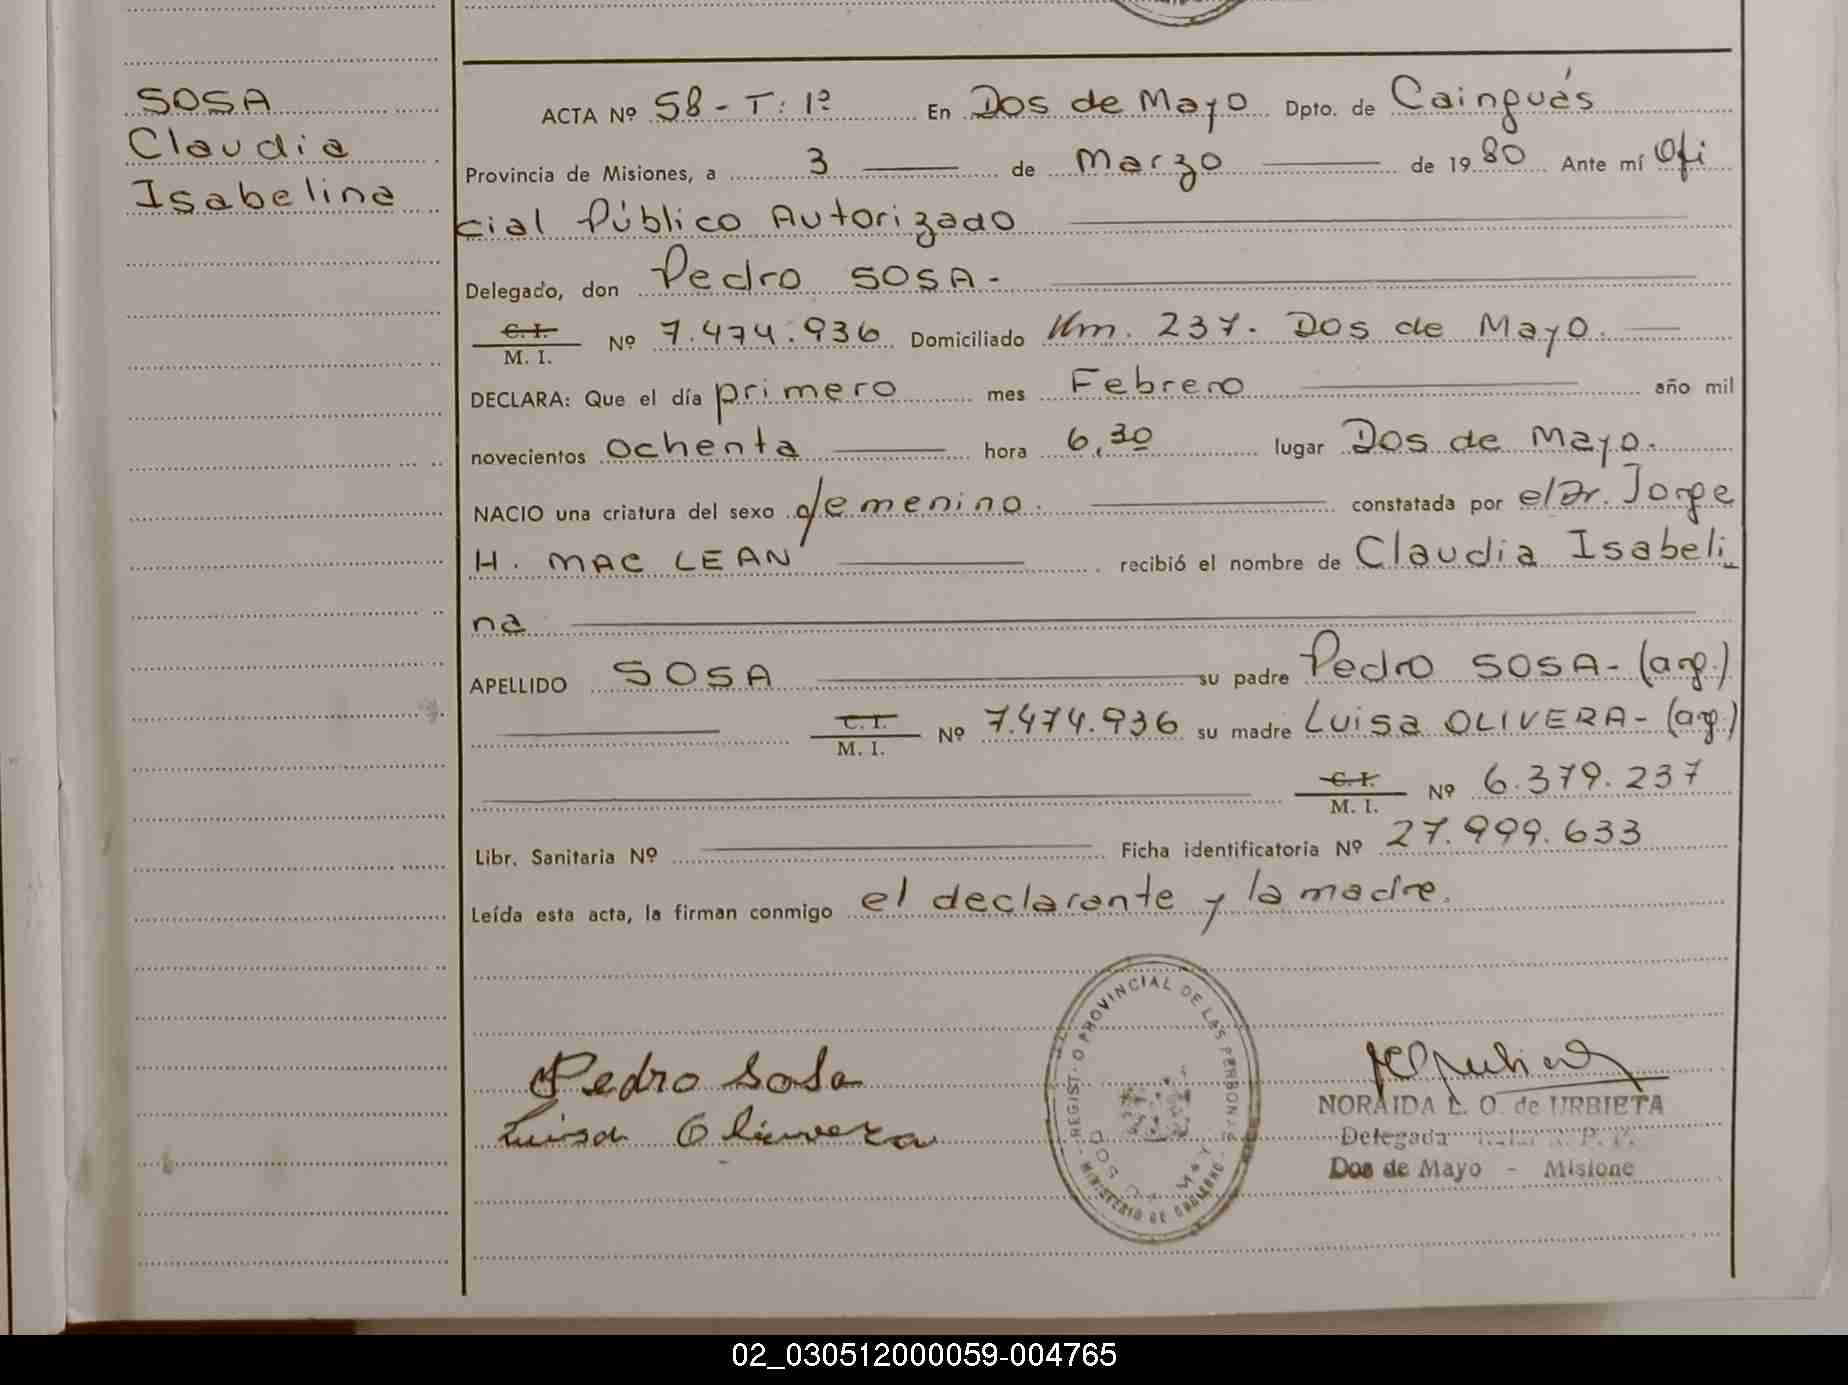 SOSA
Claudia
Isabelina
ACTA Nº 58 - T: 1º En Dos de Mayo Dpto. de Cainguás
Provincia de Misiones, a 3 de Marzo de 1980 Ante mí Ofi
cial Público Autorizado
Delegado, don Pedro SOSA-
C. I.
M. I. Nº 7.474.936 Domiciliado Km. 237. Dos de Mayo.
DECLARA: Que el día primero mes Febrero año mil
novecientos ochenta hora 6,30 lugar Dos de Mayo.
NACIO una criatura del sexo femenino. constatada por el Dr. Jorge
H. MAC LEAN recibió el nombre de Claudia Isabeli
na
APELLIDO SOSA su padre Pedro SOSA- (arg.)
C. I.
M. I. Nº 7.474.936 su madre Luisa OLIVERA- (arg.)
C. I.
M. I. Nº 6.379.237
Libr. Sanitaria Nº Ficha identificatoria Nº 27.999.633
Leída esta acta, la firman conmigo el declarante y la madre.
REGISTRO PROVINCIAL DE LAS PERSONAS
MINISTERIO DE GOBIERNO
Pedro Sosa
Luisa Olivera
NORAIDA L. O. de URBIETA
Delegada
Dos de Mayo - Misione
02_030512000059-004765